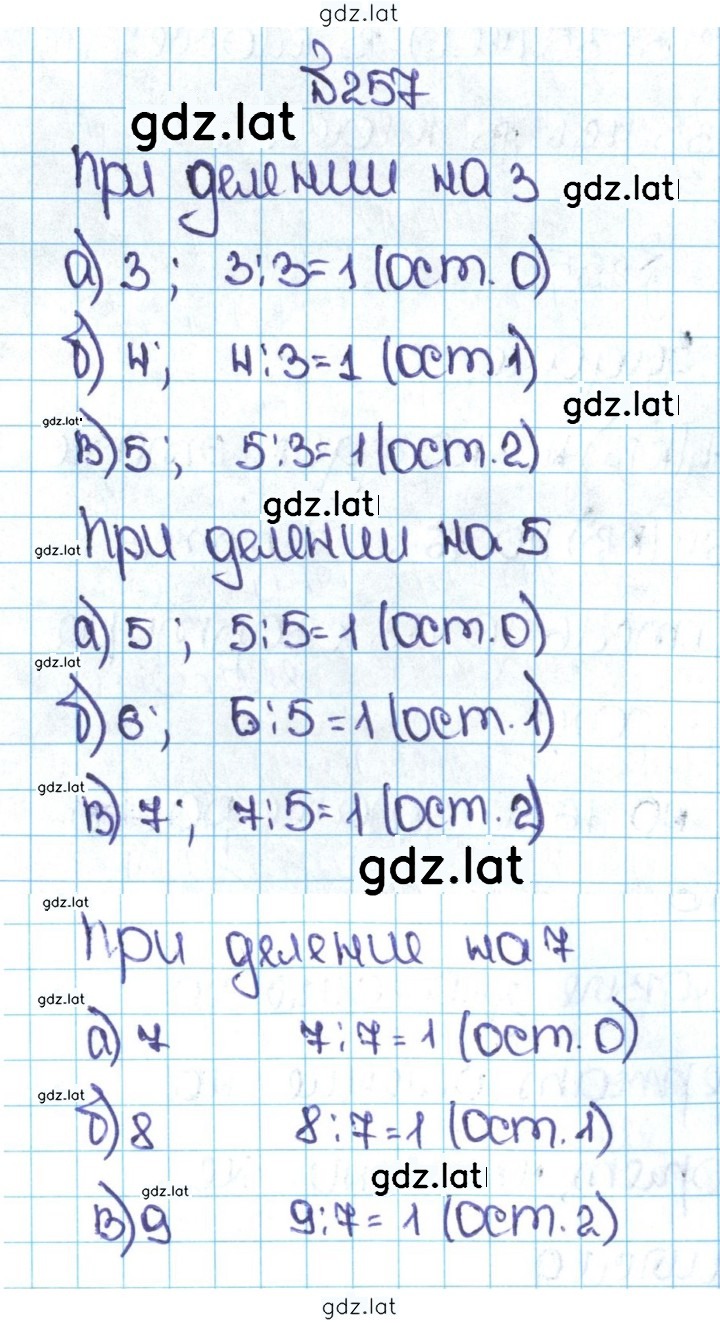 gdz.lat
№257
gdz.lat
При делении на 3 gdz.lat
а) 3; 3:3=1 (ост. 0)
б) 4; 4:3=1 (ост 1)
gdz.lat
gdz.lat
в) 5; 5:3=1 (ост. 2)
gdz.lat
gdz.lat При делении на 5
а) 5; 5:5=1 (ост. 0)
gdz.lat
б) 6; 6:5=1 (ост. 1)
gdz.lat
в) 7; 7:5=1 (ост. 2)
gdz.lat
gdz.lat
При деление на 7
gdz.lat
а) 7 7:7=1 (ост. 0)
gdz.lat
б) 8 8:7=1 (ост. 1)
gdz.lat
gdz.lat
в) 9 9:7=1 (ост. 2)
gdz.lat